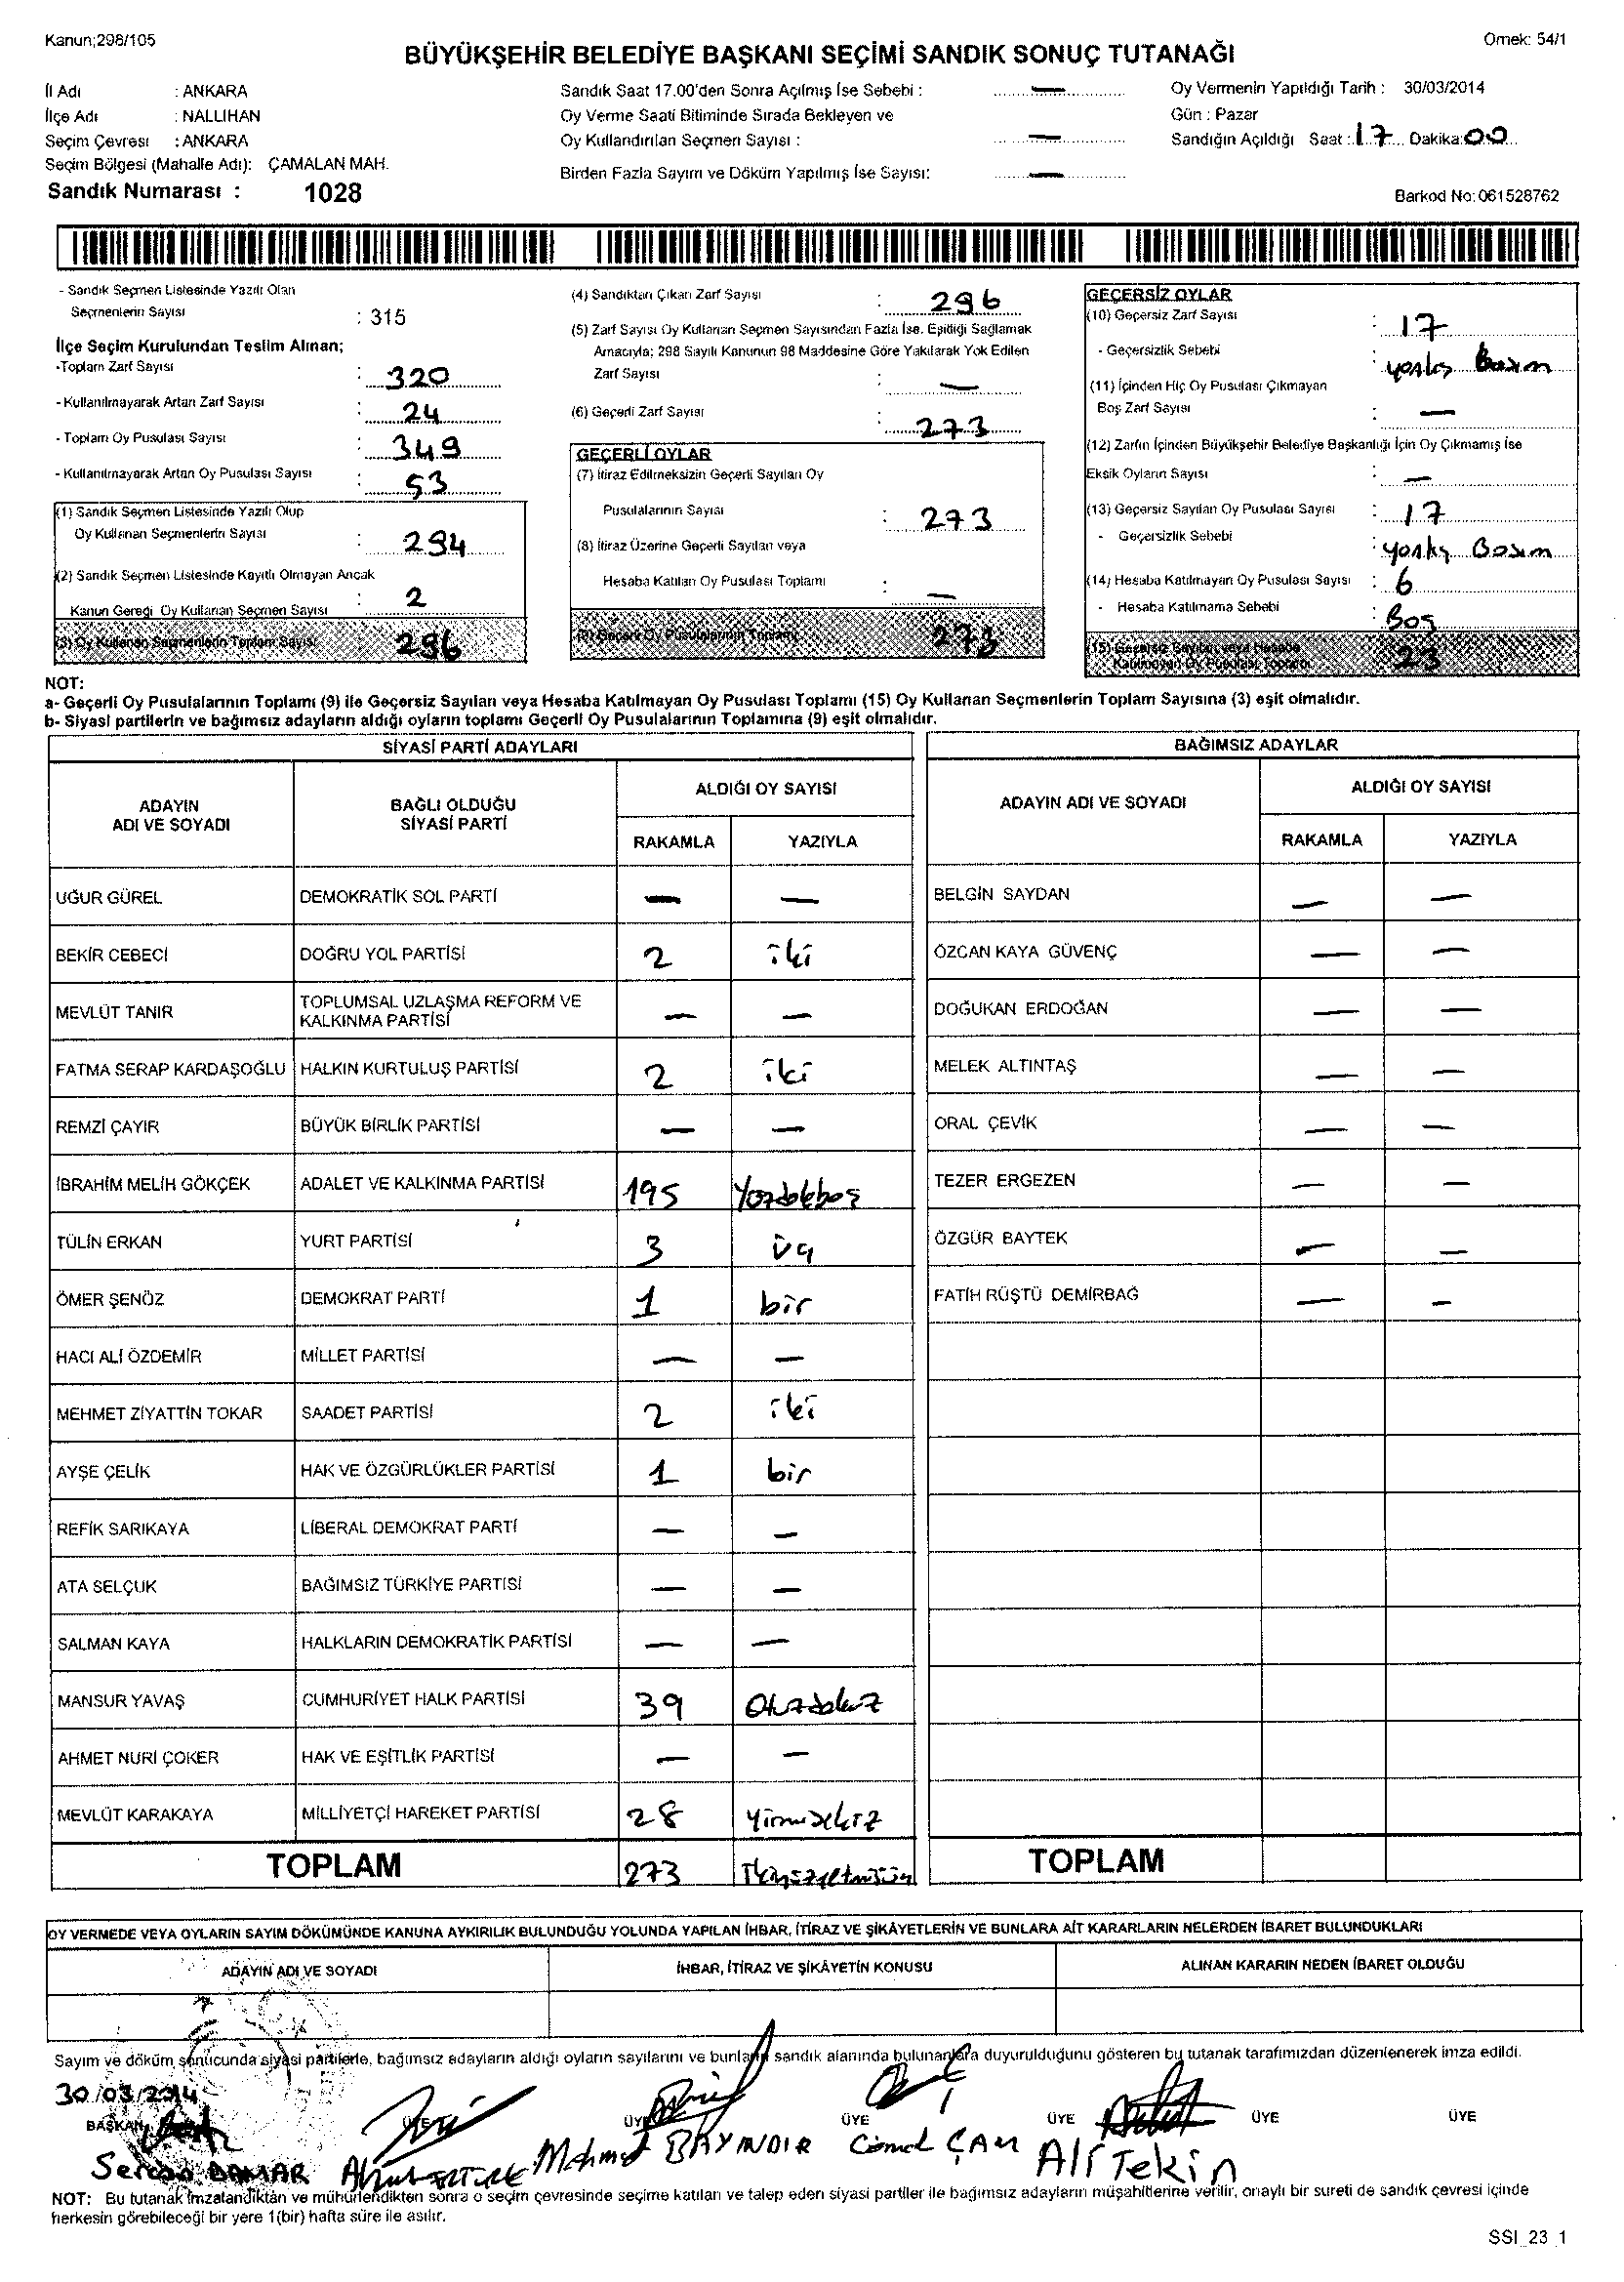 Kanun;298/105
Örnek: 54/1
BÜYÜKŞEHİR BELEDİYE BAŞKANI SEÇİMİ SANDIK SONUÇ TUTANAĞI
İl Adı : ANKARA
İlçe Adı : NALLIHAN
Seçim Çevresi : ANKARA
Seçim Bölgesi (Mahalle Adı): ÇAMALAN MAH.
Sandık Numarası : 1028
Sandık Saat 17.00'den Sonra Açılmış İse Sebebi : —
Oy Verme Saati Bitiminde Sırada Bekleyen ve
Oy Kullandırılan Seçmen Sayısı : —
Birden Fazla Sayım ve Döküm Yapılmış İse Sayısı: —
Oy Vermenin Yapıldığı Tarih : 30/03/2014
Gün : Pazar
Sandığın Açıldığı Saat : 17 Dakika: 00
Barkod No: 061528762
- Sandık Seçmen Listesinde Yazılı Olan
Seçmenlerin Sayısı : 315
İlçe Seçim Kurulundan Teslim Alınan;
-Toplam Zarf Sayısı : 320
- Kullanılmayarak Artan Zarf Sayısı : 24
- Toplam Oy Pusulası Sayısı : 349
- Kullanılmayarak Artan Oy Pusulası Sayısı : 53
(1) Sandık Seçmen Listesinde Yazılı Olup
Oy Kullanan Seçmenlerin Sayısı : 294
(2) Sandık Seçmen Listesinde Kayıtlı Olmayan Ancak
Kanun Gereği Oy Kullanan Seçmen Sayısı : 2
(3) Oy Kullanan Seçmenlerin Toplam Sayısı 296
(4) Sandıktan Çıkan Zarf Sayısı : 296
(5) Zarf Sayısı Oy Kullanan Seçmen Sayısından Fazla İse, Eşitliği Sağlamak
Amacıyla; 298 Sayılı Kanunun 98 Maddesine Göre Yakılarak Yok Edilen
Zarf Sayısı : —
(6) Geçerli Zarf Sayısı : 273
GEÇERLİ OYLAR
(7) İtiraz Edilmeksizin Geçerli Sayılan Oy
Pusulalarının Sayısı : 273
(8) İtiraz Üzerine Geçerli Sayılan veya
Hesaba Katılan Oy Pusulası Toplamı : —
(9) Geçerli Oy Pusulalarının Toplamı 273
GEÇERSİZ OYLAR
(10) Geçersiz Zarf Sayısı : 17
- Geçersizlik Sebebi : yanlış Basım
(11) İçinden Hiç Oy Pusulası Çıkmayan
Boş Zarf Sayısı : —
(12) Zarfın İçinden Büyükşehir Belediye Başkanlığı İçin Oy Çıkmamış İse
Eksik Oyların Sayısı : —
(13) Geçersiz Sayılan Oy Pusulası Sayısı : 17
- Geçersizlik Sebebi : yanlış Basım
(14) Hesaba Katılmayan Oy Pusulası Sayısı : 6
- Hesaba Katılmama Sebebi : Boş
(15) Geçersiz Sayılan veya Hesaba
Katılmayan Oy Pusulası Toplamı 23
NOT:
a- Geçerli Oy Pusulalarının Toplamı (9) ile Geçersiz Sayılan veya Hesaba Katılmayan Oy Pusulası Toplamı (15) Oy Kullanan Seçmenlerin Toplam Sayısına (3) eşit olmalıdır.
b- Siyasi partilerin ve bağımsız adayların aldığı oyların toplamı Geçerli Oy Pusulalarının Toplamına (9) eşit olmalıdır.
SİYASİ PARTİ ADAYLARI
ADAYIN ADI VE SOYADI BAĞLI OLDUĞU SİYASİ PARTİ ALDIĞI OY SAYISI
RAKAMLA YAZIYLA
UĞUR GÜREL DEMOKRATİK SOL PARTİ — —
BEKİR CEBECİ DOĞRU YOL PARTİSİ 2 iki
MEVLÜT TANIR TOPLUMSAL UZLAŞMA REFORM VE KALKINMA PARTİSİ — —
FATMA SERAP KARDAŞOĞLU HALKIN KURTULUŞ PARTİSİ 2 iki
REMZİ ÇAYIR BÜYÜK BİRLİK PARTİSİ — —
İBRAHİM MELİH GÖKÇEK ADALET VE KALKINMA PARTİSİ 195 Yüzdokbeş
TÜLİN ERKAN YURT PARTİSİ 3 üç
ÖMER ŞENÖZ DEMOKRAT PARTİ 1 bir
HACI ALİ ÖZDEMİR MİLLET PARTİSİ — —
MEHMET ZİYATTİN TOKAR SAADET PARTİSİ 2 iki
AYŞE ÇELİK HAK VE ÖZGÜRLÜKLER PARTİSİ 1 bir
REFİK SARIKAYA LİBERAL DEMOKRAT PARTİ — —
ATA SELÇUK BAĞIMSIZ TÜRKİYE PARTİSİ — —
SALMAN KAYA HALKLARIN DEMOKRATİK PARTİSİ — —
MANSUR YAVAŞ CUMHURİYET HALK PARTİSİ 39 Otuzdokuz
AHMET NURİ ÇOKER HAK VE EŞİTLİK PARTİSİ — —
MEVLÜT KARAKAYA MİLLİYETÇİ HAREKET PARTİSİ 28 Yirmisekiz
TOPLAM 273
BAĞIMSIZ ADAYLAR
ADAYIN ADI VE SOYADI ALDIĞI OY SAYISI
RAKAMLA YAZIYLA
BELGİN SAYDAN — —
ÖZCAN KAYA GÜVENÇ — —
DOĞUKAN ERDOĞAN — —
MELEK ALTINTAŞ — —
ORAL ÇEVİK — —
TEZER ERGEZEN — —
ÖZGÜR BAYTEK — —
FATİH RÜŞTÜ DEMİRBAĞ — —
TOPLAM
OY VERMEDE VEYA OYLARIN SAYIM DÖKÜMÜNDE KANUNA AYKIRILIK BULUNDUĞU YOLUNDA YAPILAN İHBAR, İTİRAZ VE ŞİKÂYETLERİN VE BUNLARA AİT KARARLARIN NELERDEN İBARET BULUNDUKLARI
ADAYIN ADI VE SOYADI İHBAR, İTİRAZ VE ŞİKÂYETİN KONUSU ALINAN KARARIN NEDEN İBARET OLDUĞU
Sayım ve döküm sonucunda siyasi partilerle, bağımsız adayların aldığı oyların sayılarını ve bunların sandık alanında bulunanlara duyurulduğunu gösteren bu tutanak tarafımızdan düzenlenerek imza edildi.
30/03/2014
BAŞKAN ÜYE ÜYE ÜYE ÜYE ÜYE ÜYE
Sercan DAMAR Mehmet BAYINDIR Cemal ÇAM Ali Tekin
NOT: Bu tutanak imzalandıktan ve mühürlendikten sonra o seçim çevresinde seçime katılan ve talep eden siyasi partiler ile bağımsız adayların müşahitlerine verilir, onaylı bir sureti de sandık çevresi içinde
herkesin görebileceği bir yere 1(bir) hafta süre ile asılır.
SSI_23_1